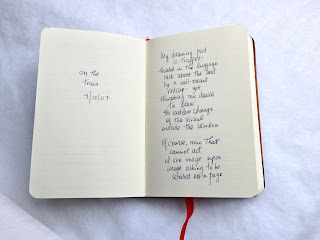 on the
Train
7/10/07
My drawing pad
is trapped
in the luggage
rack above the seat
by a well-meant
thwarting my desire
To draw
the endless change
of the visual
outside the window
Of course, now that I
cannot act
I see image upon
image asking to be
on a page